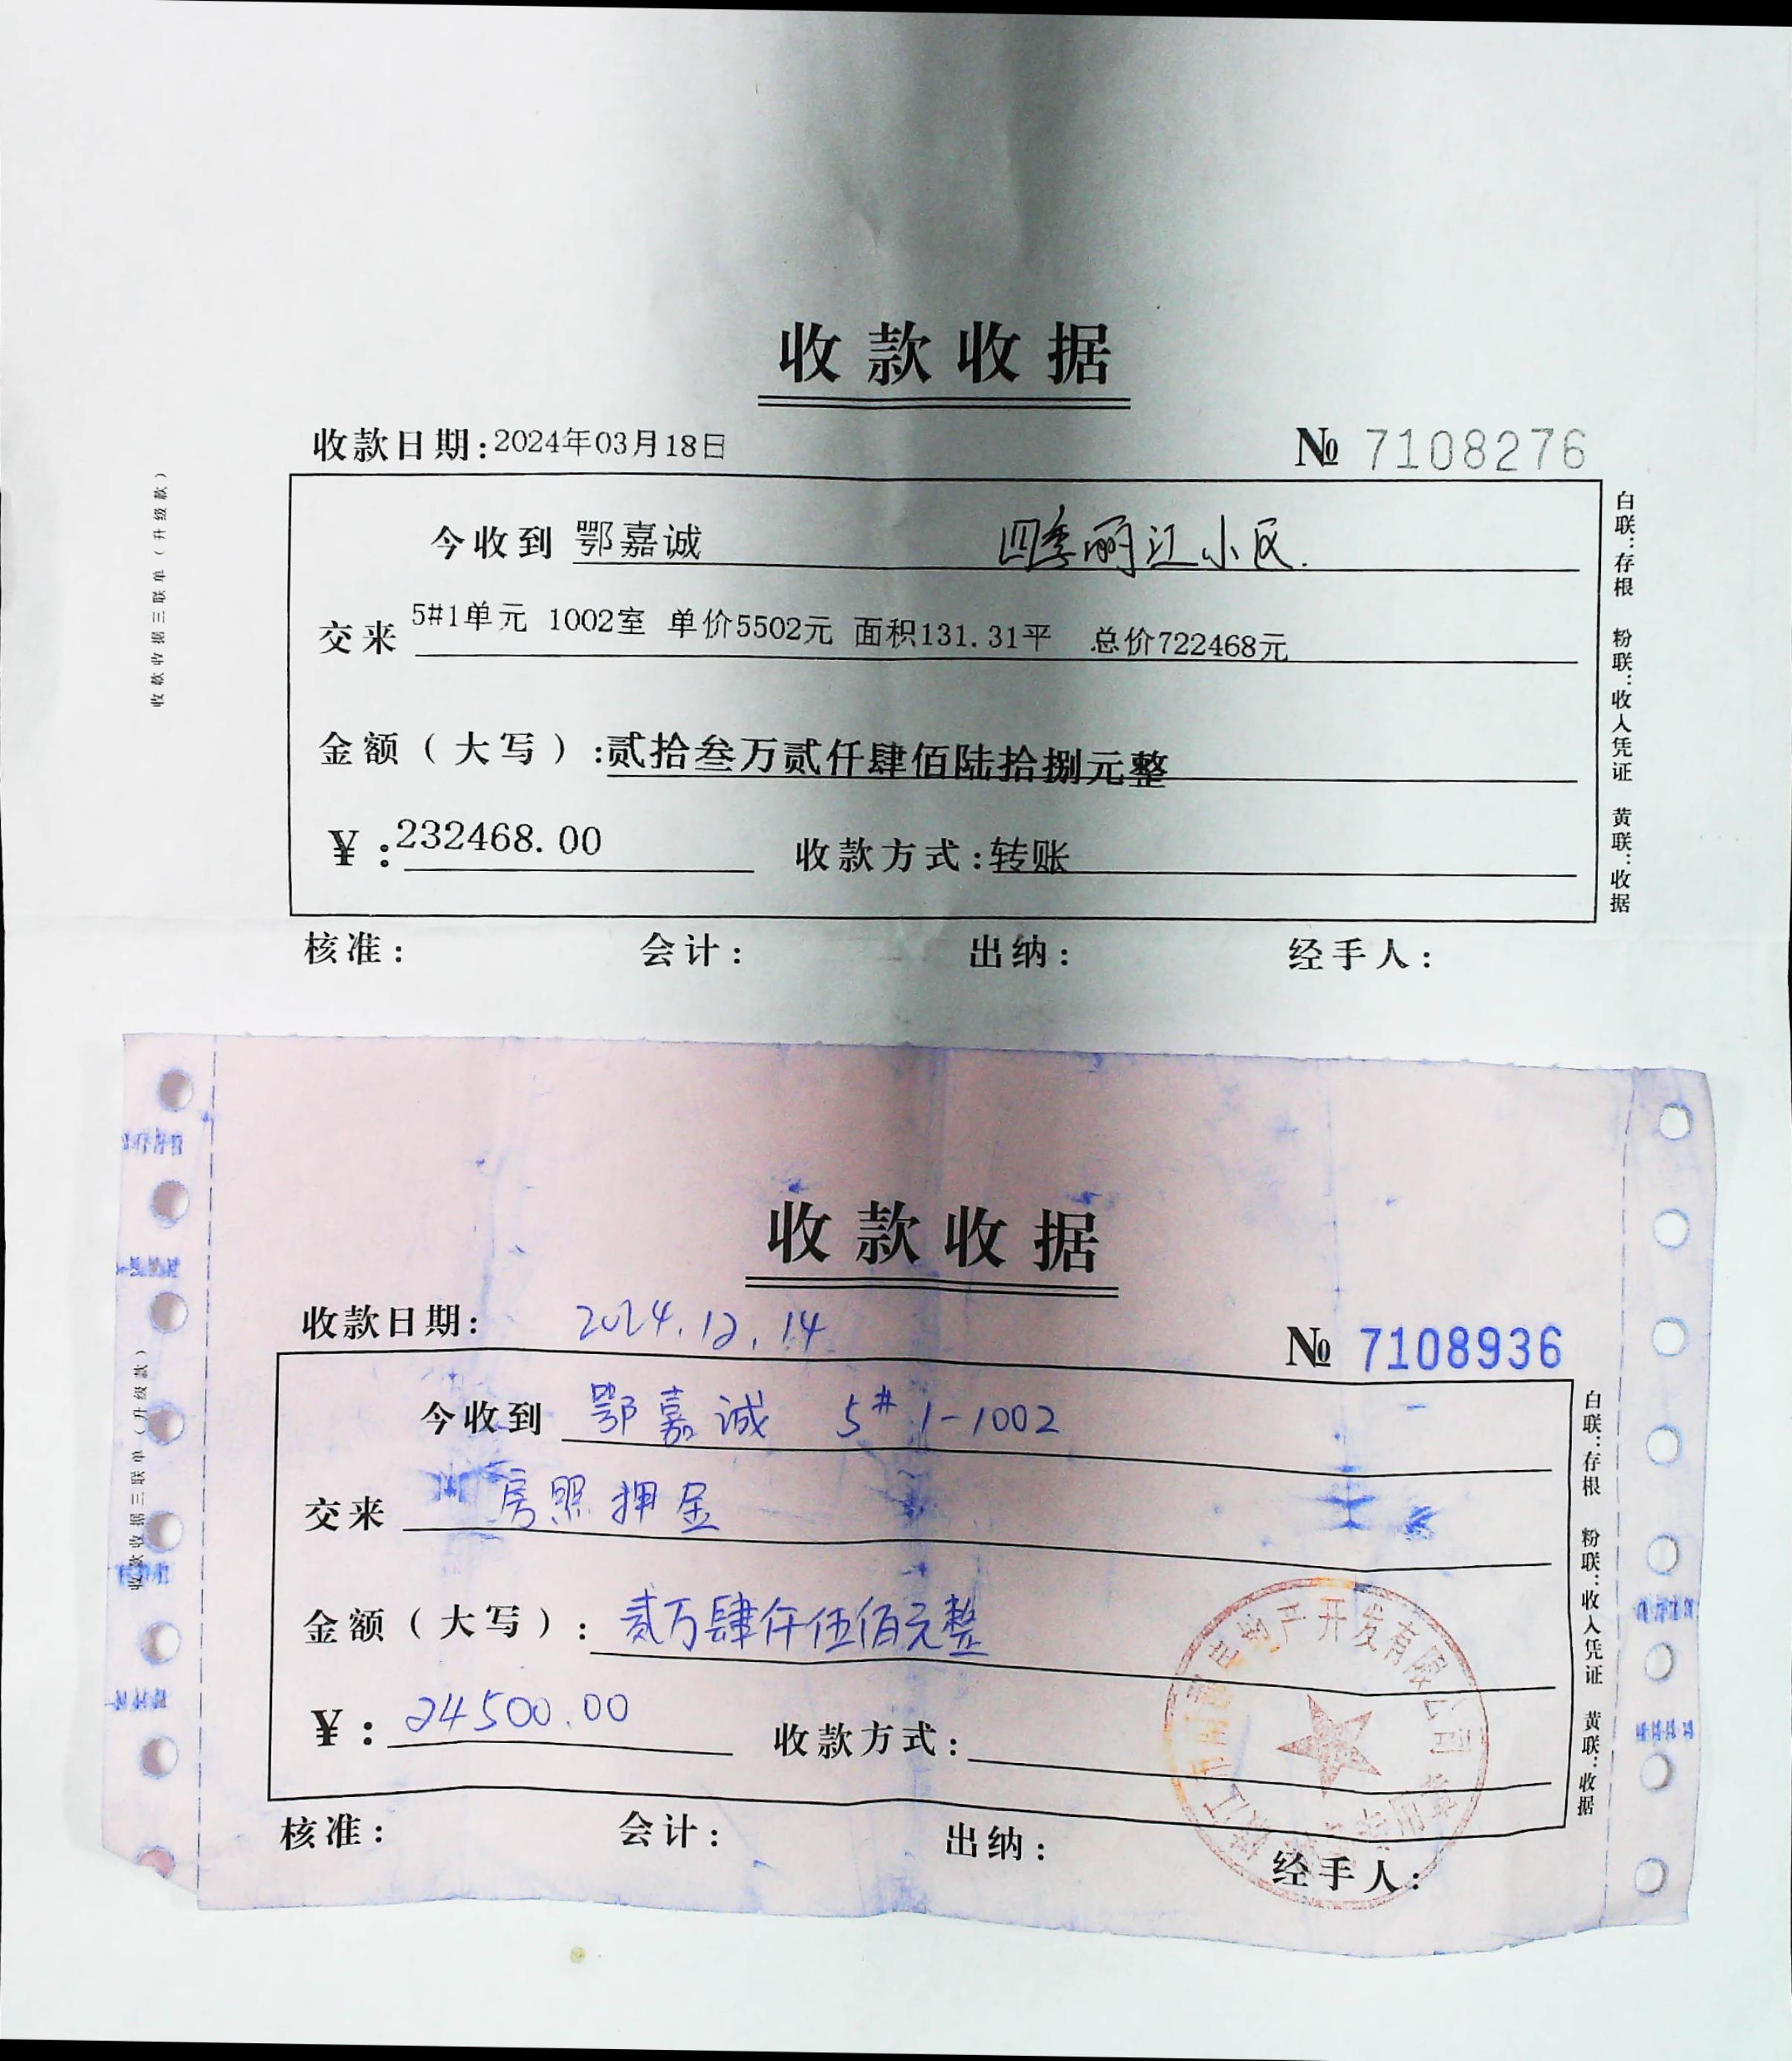 收款收据
收款日期:2024年03月18日 № 7108276
今收到 鄂嘉诚 四季丽江小区.
交来 5#1单元 1002室 单价5502元 面积131.31平 总价722468元
金额（大写）:贰拾叁万贰仟肆佰陆拾捌元整
¥:232468.00 收款方式:转账
核准: 会计: 出纳: 经手人:
收款收据三联单（升级款）
白联:存根 粉联:收入凭证 黄联:收据
收款收据
收款日期: 2024.12.14 № 7108936
今收到 鄂嘉诚 5#1-1002
交来 房照押金
金额（大写）: 贰万肆仟伍佰元整
¥: 24500.00 收款方式:
核准: 会计: 出纳: 经手人:
收款收据三联单（升级款）
白联:存根 粉联:收入凭证 黄联:收据
产开发有限公司